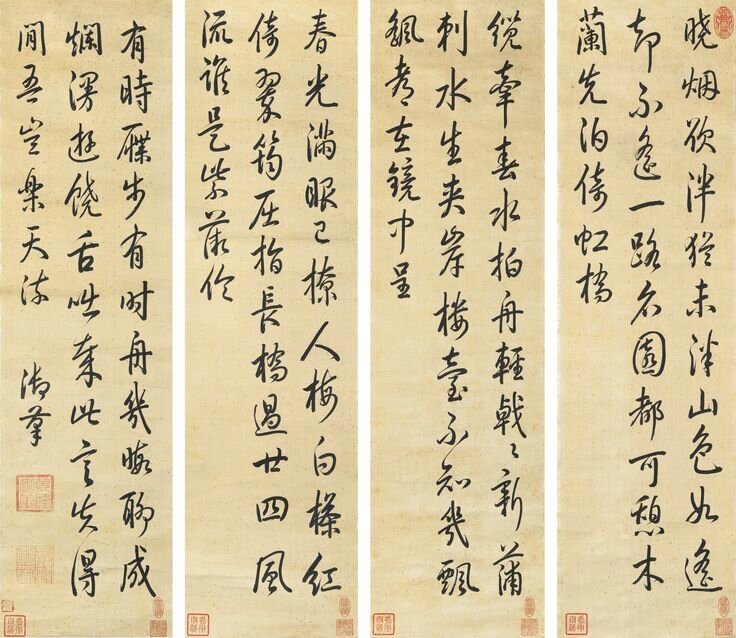 曉烟欲泮猶未泮山色如遙
却不遙一路名園都可憩木
蘭先泊倚虹橋
纜牽春水拍舟輕戢〻新蒲
刺水生夾岸樓臺不知幾飄
颻都在鏡中呈
春光滿眼已撩人梅白紅
倚翠筠屈指長橋過廿四風
流誰是紫薇倫
有時屧步有时舟幾暇聊成
爛漫遊饒舌咄哉此言失得
閒吾豈樂天流
御筆